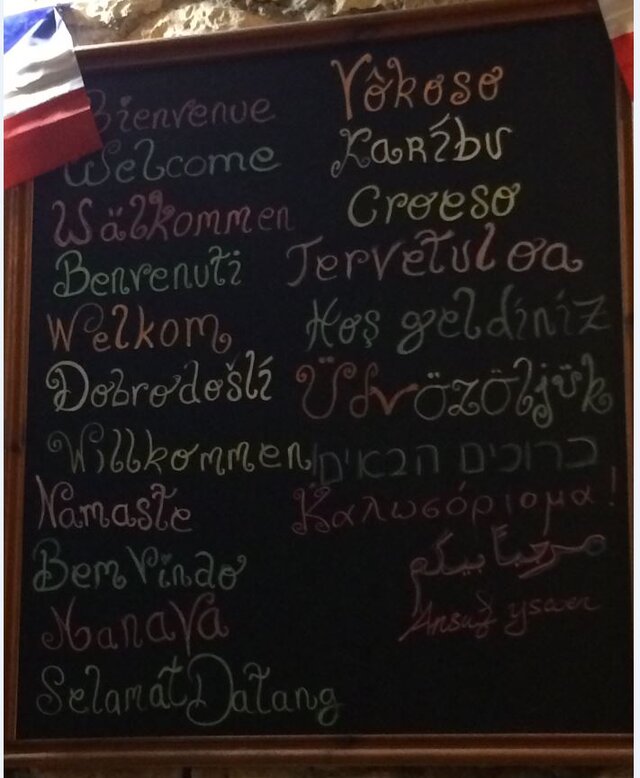 Bienvenue
Welcome
Wälkommen
Benvenuti
Welkom
Dobrodošlí
Willkommen
Namaste
Bem Vindo
Manava
Selamat Datang
Yôkoso
Karíbu
Croeso
Tervetuloa
Hoş geldíníz
Üdvözöljük
ברוכים הבאים
Καλωσόρισμα!
مرحباً بيكم
Ansuf yswen